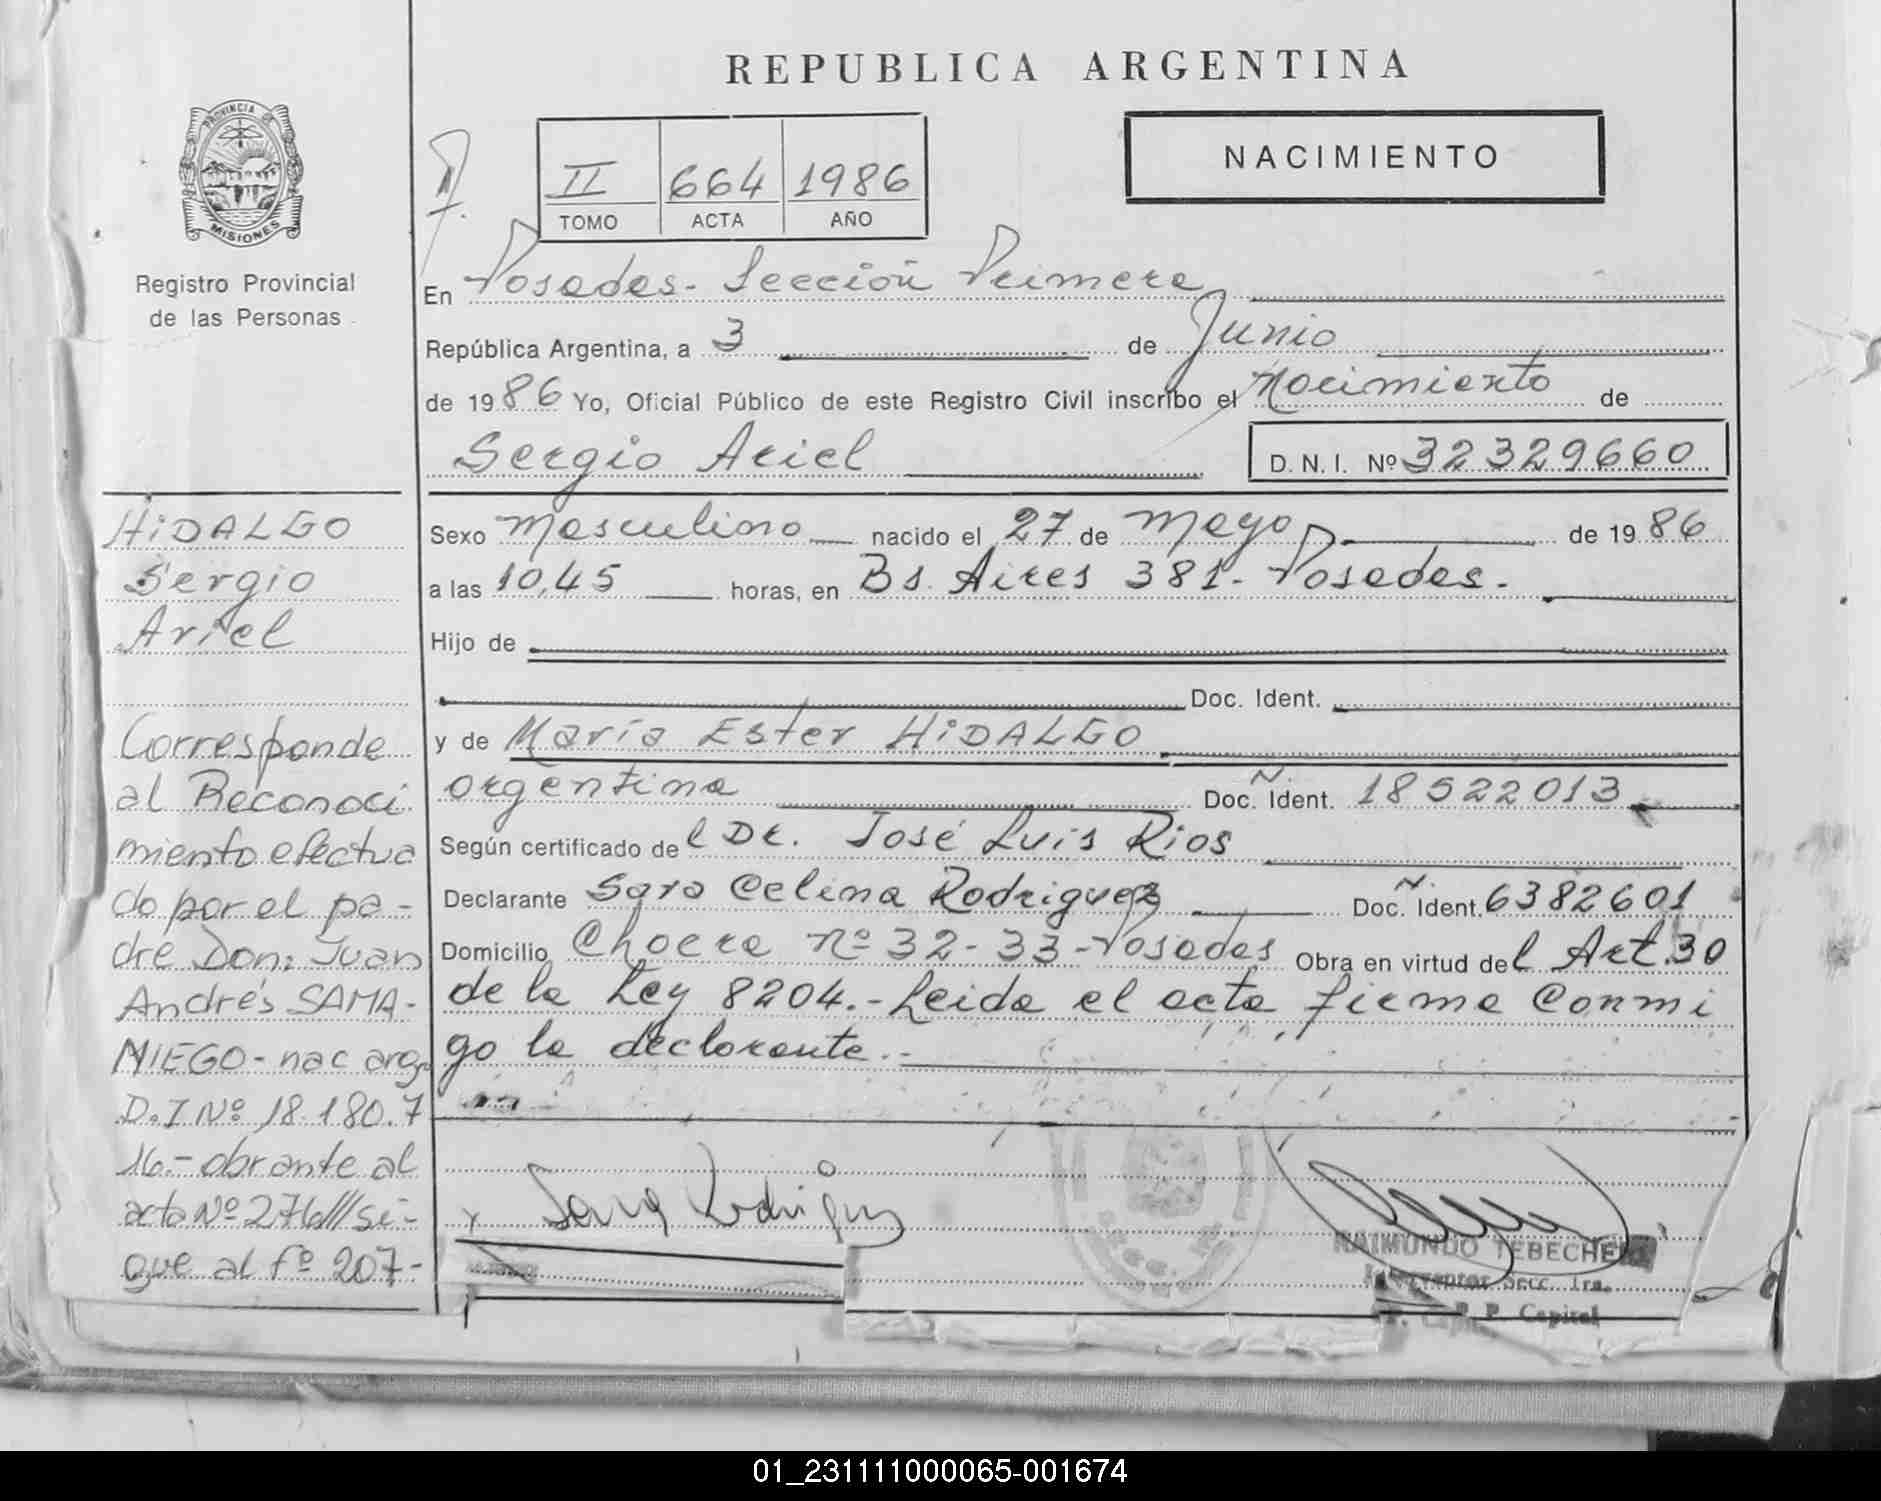 REPUBLICA ARGENTINA
PROVINCIA DE
MISIONES
Registro Provincial
de las Personas
II 664 1986
TOMO ACTA AÑO
NACIMIENTO
En Posadas - Sección Primera
República Argentina, a 3 de Junio
de 1986 Yo, Oficial Público de este Registro Civil inscribo el Nacimiento de
Sergio Ariel D. N. I. Nº 32329660
HiDALGO
Sergio
Ariel
Sexo Masculino nacido el 27 de Mayo de 1986
a las 10,45 horas, en Bs. Aires 381 - Posadas -
Hijo de
Doc. Ident.
y de María Ester HiDALGO
argentina Doc. Ident. 18522013
Según certificado del Dr. José Luis Rios
Declarante Sara Celina Rodriguez Doc. Ident. 6382601
Domicilio nº 32-33 - Posadas Obra en virtud del Art. 30
de la Ley 8204.- Leida el acta firma Conmi
go la declarante.-
Corresponde
al Reconoci
miento efectua
do por el pa-
dre Don: Juan
Andrés SAMA-
NIEGO - nac arg.
D.I Nº 18.180.7
16.- obrante al
acta Nº 276///si-
gue al fº 207-
Sara Rodriguez
RAIMUNDO TEBECHERI
Interventor Secc. 1ra.
R. P. Capital
01_231111000065-001674